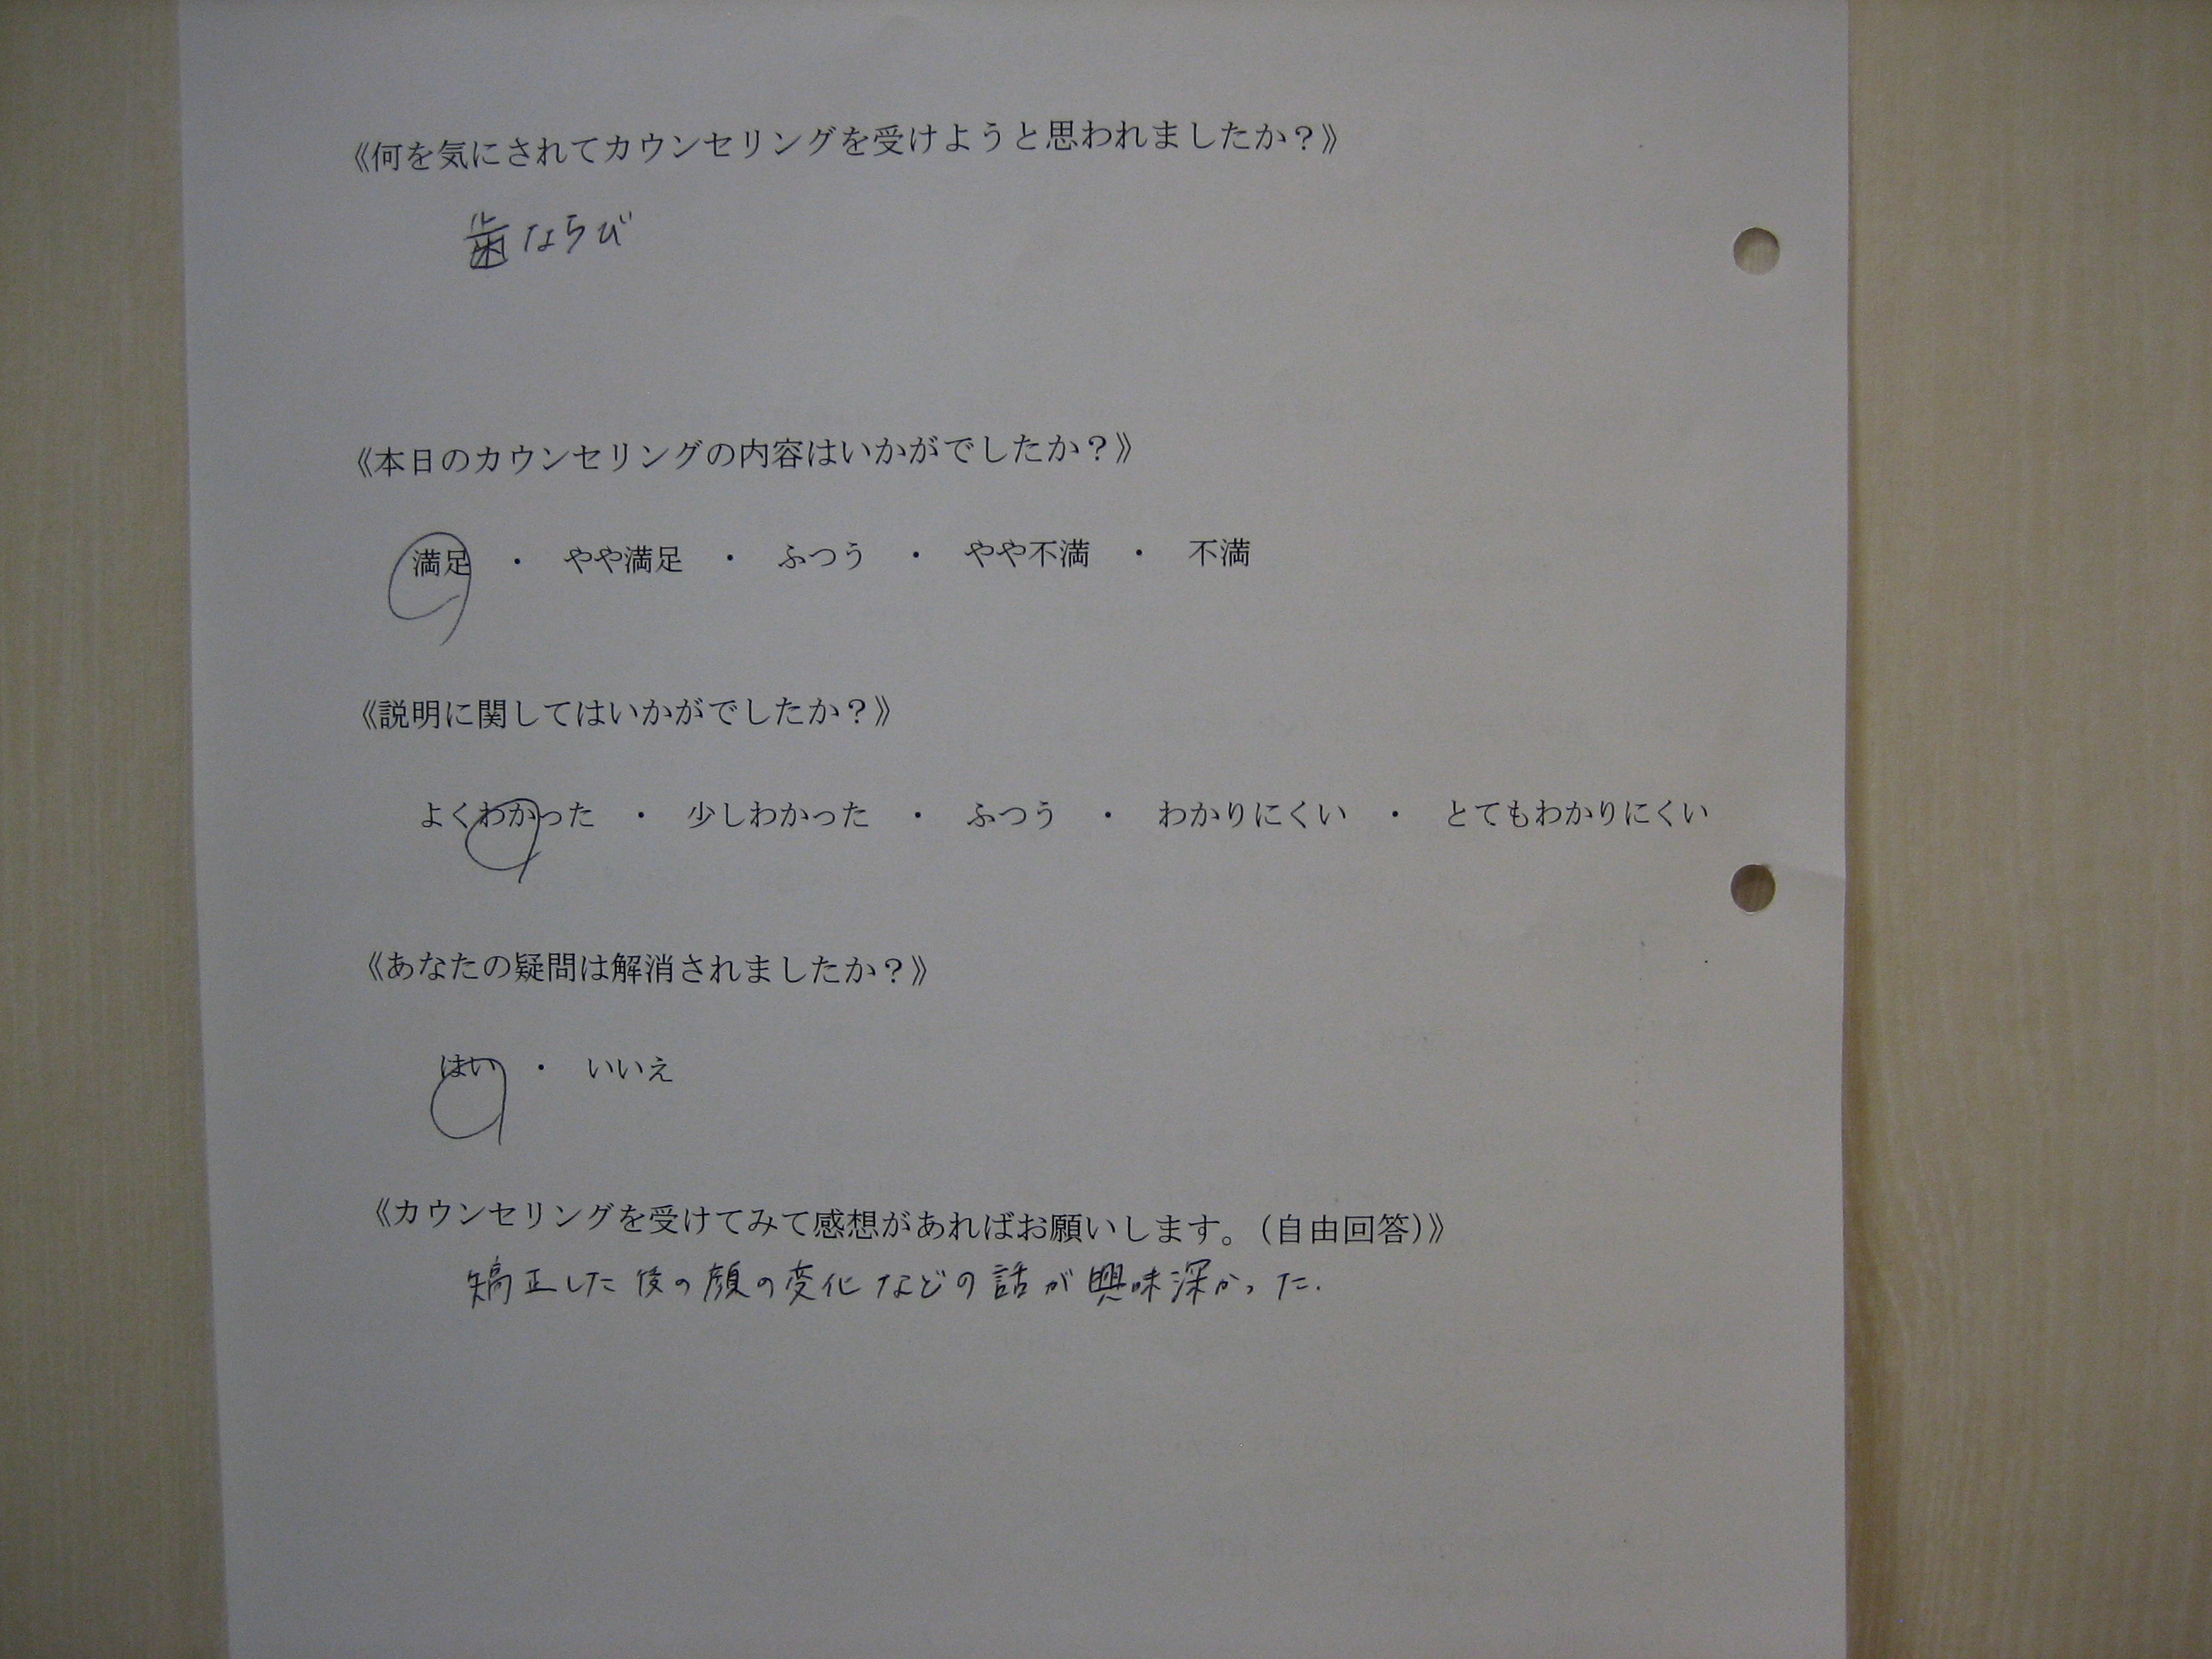 《何を気にされてカウンセリングを受けようと思われましたか？》
歯ならび
《本日のカウンセリングの内容はいかがでしたか？》
満足　・　やや満足　・　ふつう　・　やや不満　・　不満
《説明に関してはいかがでしたか？》
よくわかった　・　少しわかった　・　ふつう　・　わかりにくい　・　とてもわかりにくい
《あなたの疑問は解消されましたか？》
はい　・　いいえ
《カウンセリングを受けてみて感想があればお願いします。（自由回答）》
矯正した後の顔の変化などの話が興味深かった.